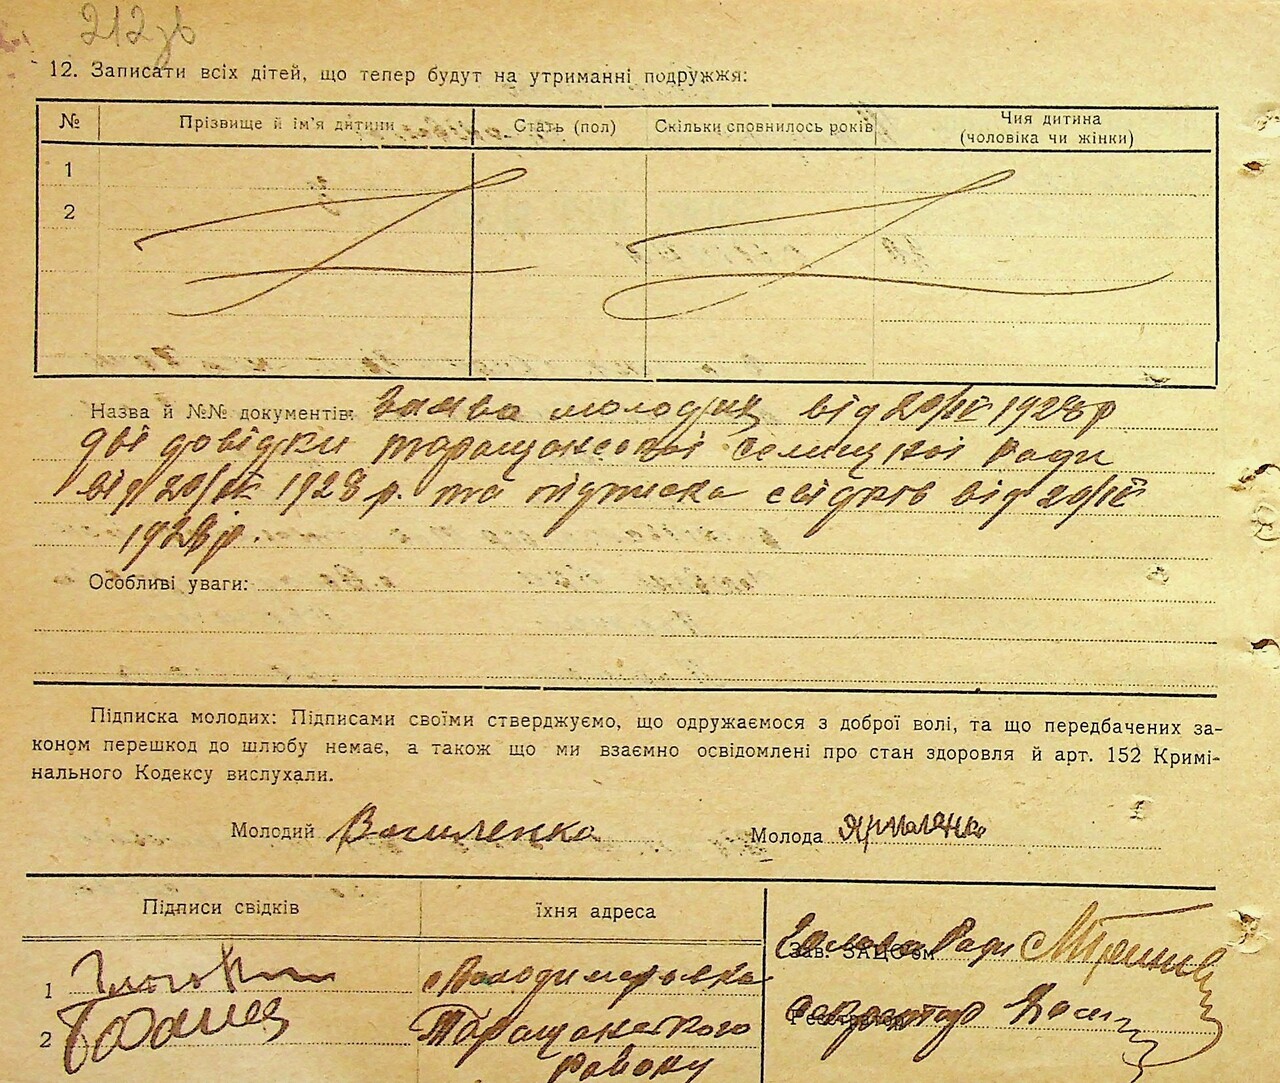 212зв
12. Записати всіх дітей, що тепер будут на утриманні подружжя:
№ Прізвище й ім'я дитини Стать (пол) Скільки сповнилось років Чия дитина
(чоловіка чи жінки)
1
2
Назва й №№ документів: Заява молодих від 20/IX 1928 р
дві довідки таращанської селищної Ради
від 20/IX 1928 р. та підписка свідків від 20/IX
1928 р.
Особливі уваги:
Підписка молодих: Підписами своїми стверджуємо, що одружаємося з доброї волі, та що передбачених за-
коном перешкод до шлюбу немає, а також що ми взаємно освідомлені про стан здоровля й арт. 152 Кримі-
нального Кодексу вислухали.
Молодий Василенко Молода Ярмоленко
Підписи свідків їхня адреса
Голова Ради
Зав. ЗАЦС'ом
1 Володимировка
Секретар
Реєстратор
2 Таращанського
Району